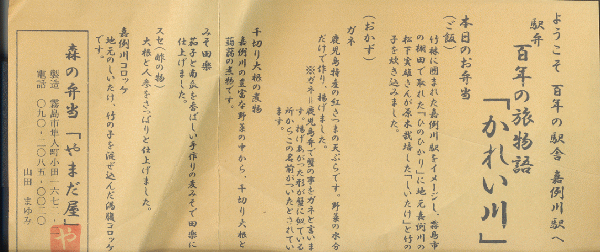 ようこそ 百年の駅舎 嘉例川駅へ
駅弁 百年の旅物語
「かれい川」
本日のお弁当
（ご飯）
竹林に囲まれた嘉例川駅をイメージし、霧島市
の棚田で取れた「ひのひかり」に地元嘉例川の
松下実雄さんが原木栽培した「しいたけ」と竹の
子を炊き込みました。
（おかず）
ガネ
鹿児島特産の紅さつまの天ぷらです。野菜の水分
だけで作り、揚げました。
※ガネ＝鹿児島弁で蟹の事をガネと言いま
す。揚げあがった形が蟹に似ている
所からこの名前がついたとされてい
ます。
千切り大根の煮物
嘉例川の豊富な野菜の中から、千切り大根と
蒟蒻の煮物です。
みそ田楽
茄子と南瓜を香ばしい手作りの麦みそで田楽に
仕上げました。
スセ（酢の物）
大根と人参をさっぱりと仕上げました。
嘉例川コロッケ
地元のしいたけ、竹の子を混ぜ込んだ満腹コロッケ
です。
森の弁当「やまだ屋」
や
製造 霧島市隼人町小田一六七二
電話 〇九〇・二〇八五・〇〇二〇
山田 まゆみ